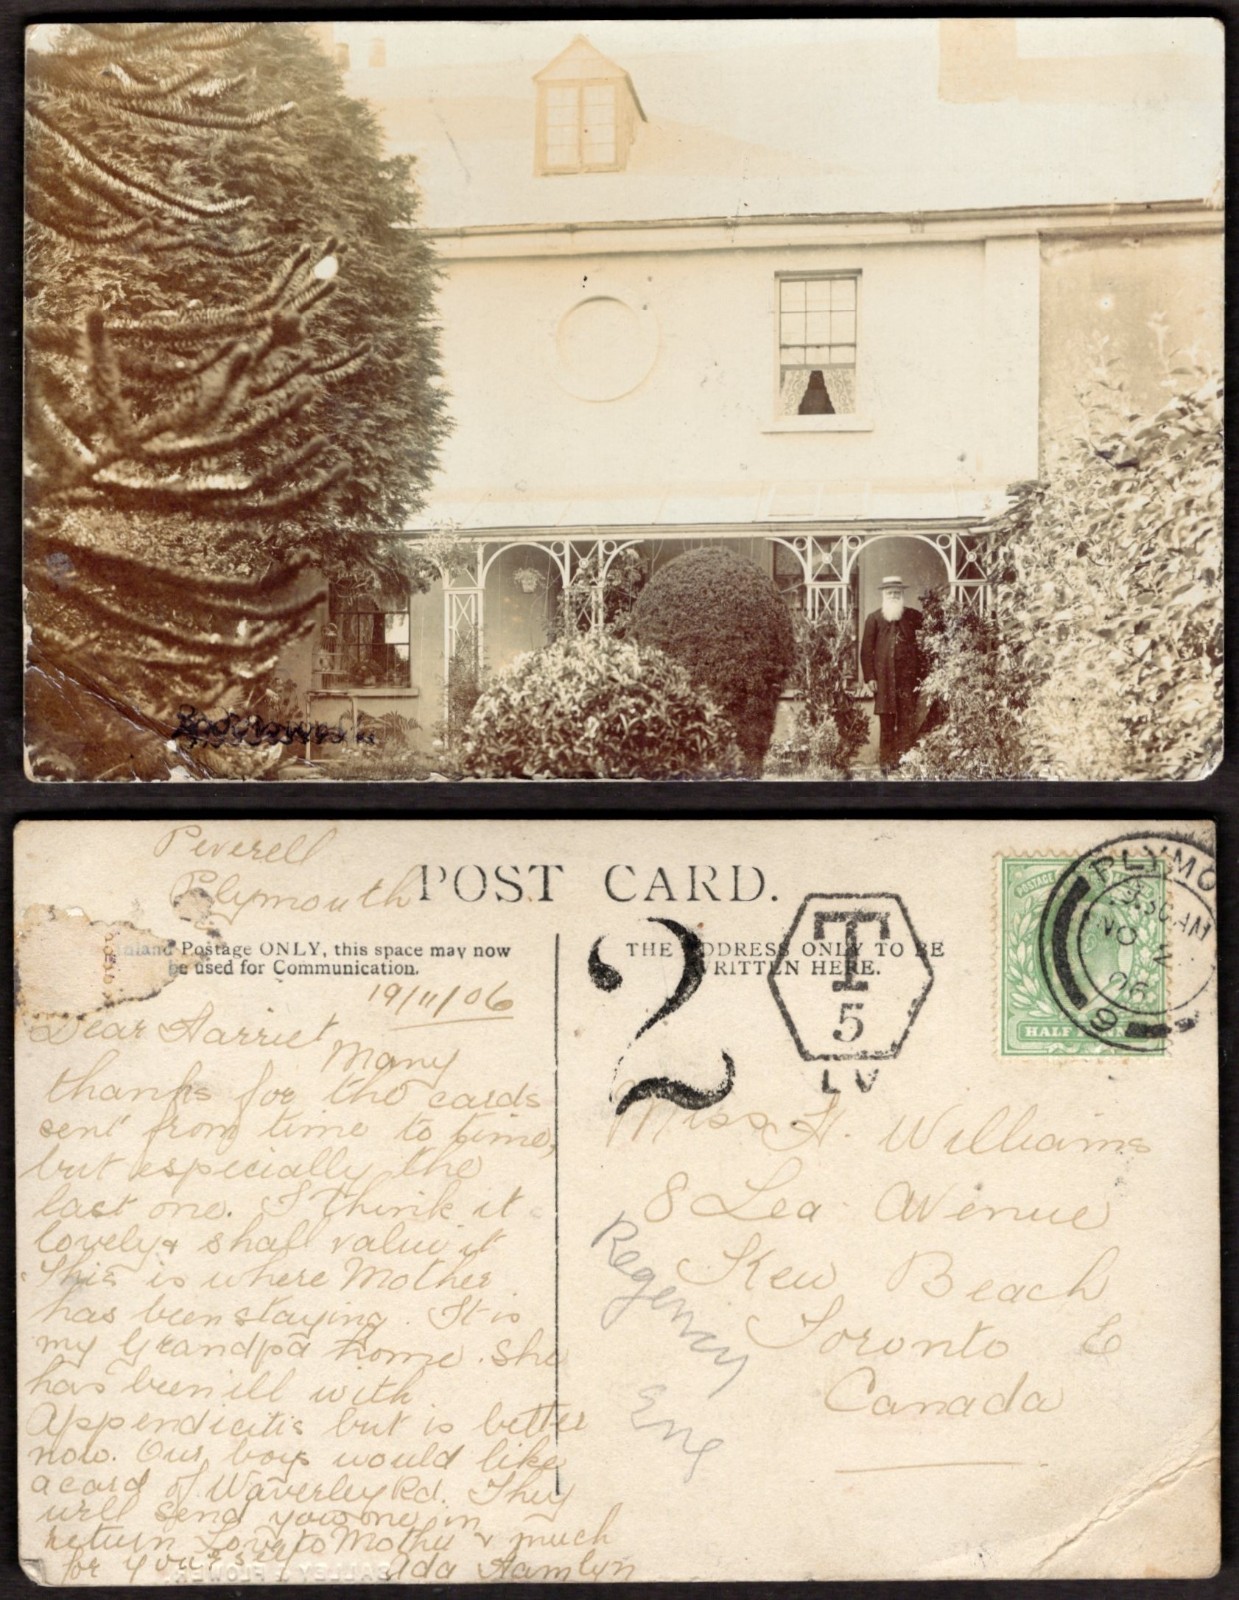 Peverell
Plymouth
POST CARD.
Inland Postage ONLY, this space may now
be used for Communication.
THE ADDRESS ONLY TO BE
WRITTEN HERE.
2
T
5
LV
POSTAGE
HALF PENNY
PLYMO
AM
NO
06
9
19/11/06
Dear Harriet
Many
thanks for the cards
sent from time to time,
but especially the
last one. I think it
lovely & shall value it
This is where Mother
has been staying. It is
my Grandpa home. She
has been ill with
Appendicitis but is better
now. Our boys would like
a card of Waverley Rd. They
will send you one in
return Love to Mother & much
for yourself Ada Hamlyn
Miss H. Williams
8 Lea Avenue
Kew Beach
Toronto E
Canada
Regency
Eng